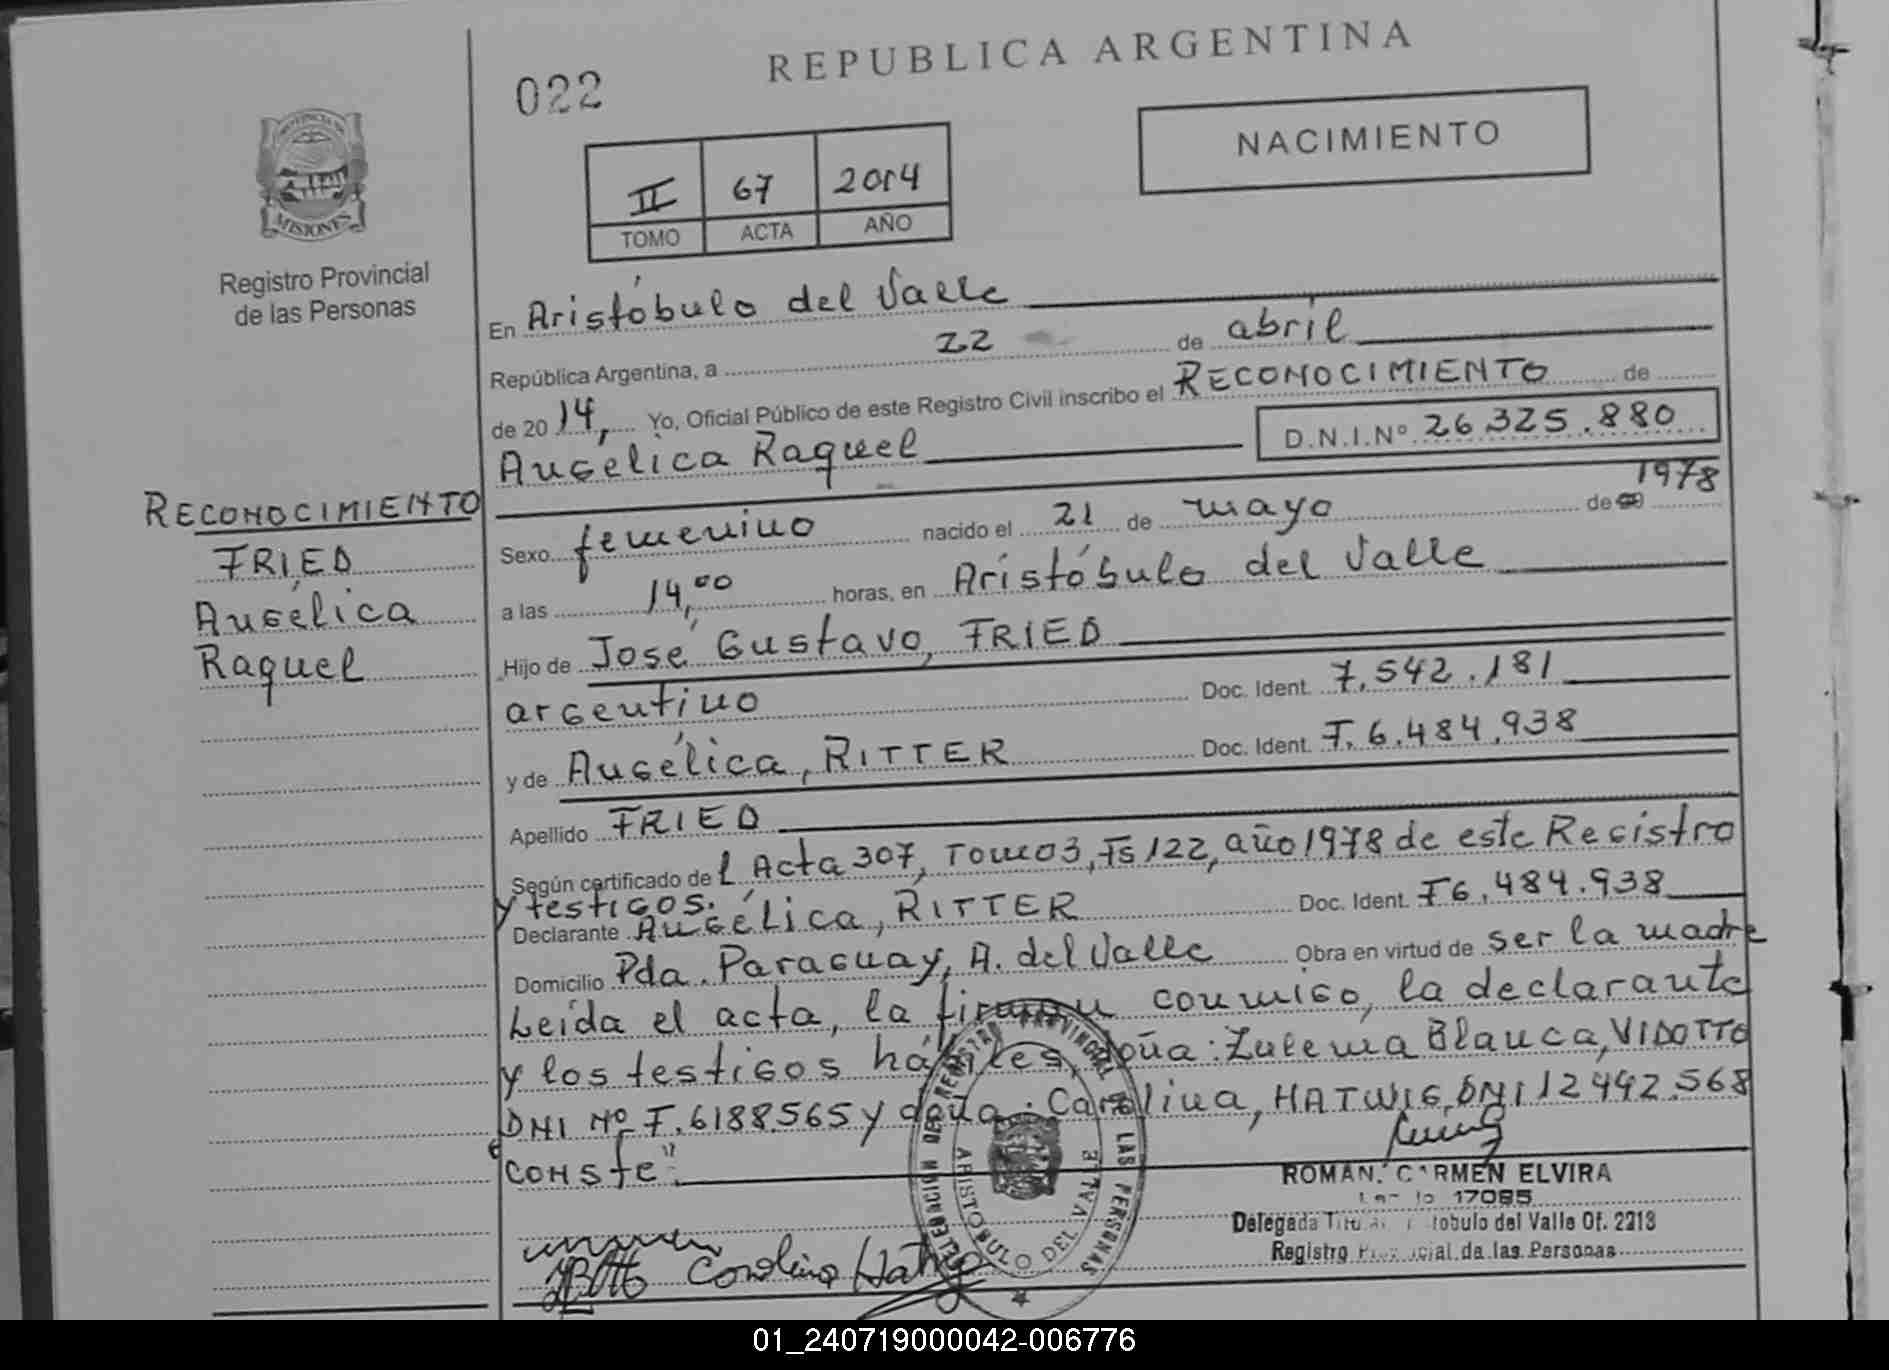 REPUBLICA ARGENTINA
022
NACIMIENTO
PROVINCIA DE
MISIONES
Registro Provincial
de las Personas
II 67 2014
TOMO ACTA AÑO
En Aristóbulo del Valle
República Argentina, a 22 de abril
de 2014, Yo, Oficial Público de este Registro Civil inscribo el RECONOCIMIENTO de
Angélica Raquel D.N.I.Nº 26.325.880
RECONOCIMIENTO
FRIED
Angélica
Raquel
Sexo femenino nacido el 21 de mayo de 1978
a las 14,00 horas, en Aristóbulo del Valle
Hijo de José Gustavo, FRIED
argentino Doc. Ident. 7.542.181
y de Angélica, RITTER Doc. Ident. F.6.484.938
Apellido FRIED
Según certificado del Acta 307, Tomo 3, Fs 122, año 1978 de este Registro
y testigos.
Declarante Angélica, RITTER Doc. Ident. F6.484.938
Domicilio Pda. Paraguay, A. del Valle Obra en virtud de ser la madre
Leída el acta, la firman conmigo, la declarante
y los testigos hábiles, doña: Zulema Blanca, VIDOTTO
DNI Nº F.6188.565 y doña: Carolina, HATWIG, DNI 12.442.568
"CONSTE"
ROMAN, CARMEN ELVIRA
17085
Delegada Titular Aristobulo del Valle Of. 2213
Registro Provincial de las Personas
DELEGACION DEL REGISTRO PROVINCIAL DE LAS PERSONAS
ARISTOBULO DEL VALLE
Carolina Hatwig
01_240719000042-006776